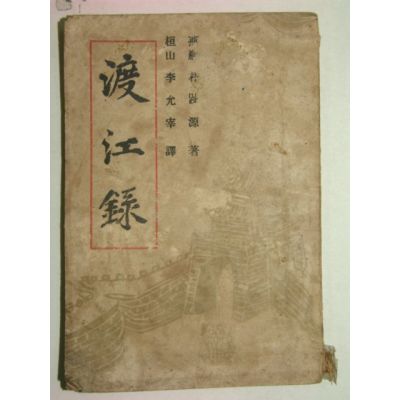 朴趾源 著
桓山 李允宰 譯
渡江錄